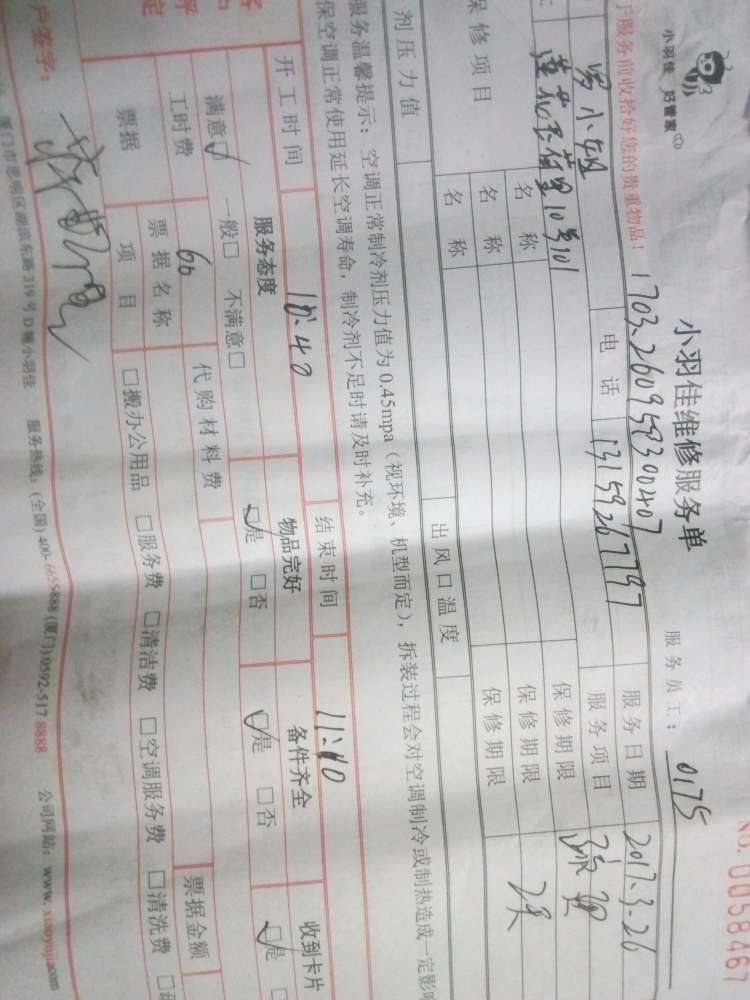 小羽佳 好管家
小羽佳维修服务单
服务员工： 0175
NO.0058467
于服务前收拾好您的贵重物品！
1703260958300407
罗小姐
电话 13159267797
服务日期 2017.3.26
莲花五村里10号101
服务项目
保修项目
名称
保修期限
名称
保修期限
名称
保修期限
剂压力值
出风口温度
服务温馨提示：空调正常制冷剂压力值为0.45mpa（视环境、机型而定），拆装过程会对空调制冷或制热造成一定影响
保空调正常使用延长空调寿命，制冷剂不足时请及时补充。
开工时间 10:40
结束时间 11:40
服务态度
物品完好
备件齐全
收到卡片
满意☑ 一般□ 不满意□
☑是 □否
☑是 □否
☑是
工时费 60
代购材料费
票据
票据名称
票据金额
项目
□搬办公用品 □服务费 □清洁费 □空调服务费 □清洗费
户签字：
厦门市思明区湖滨东路319号D幢小羽佳 服务热线：(全国)400-6655888(厦门)0592-517 8888 公司网站：www.xiaoyujia.com